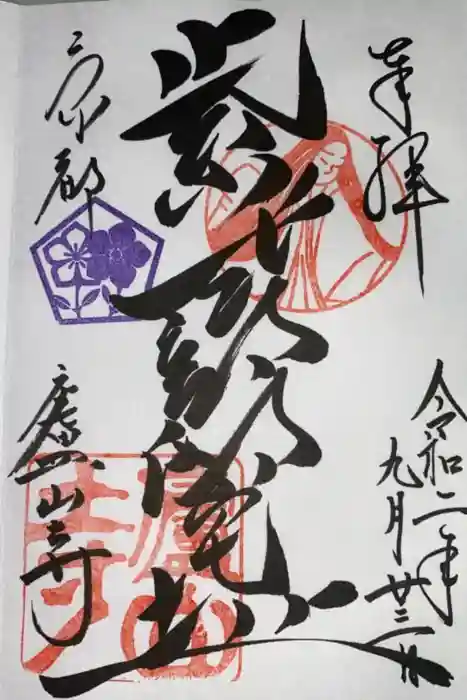 奉拝
令和二年
九月廿三日
紫式部邸宅址
京都
廬山寺
廬山
寺